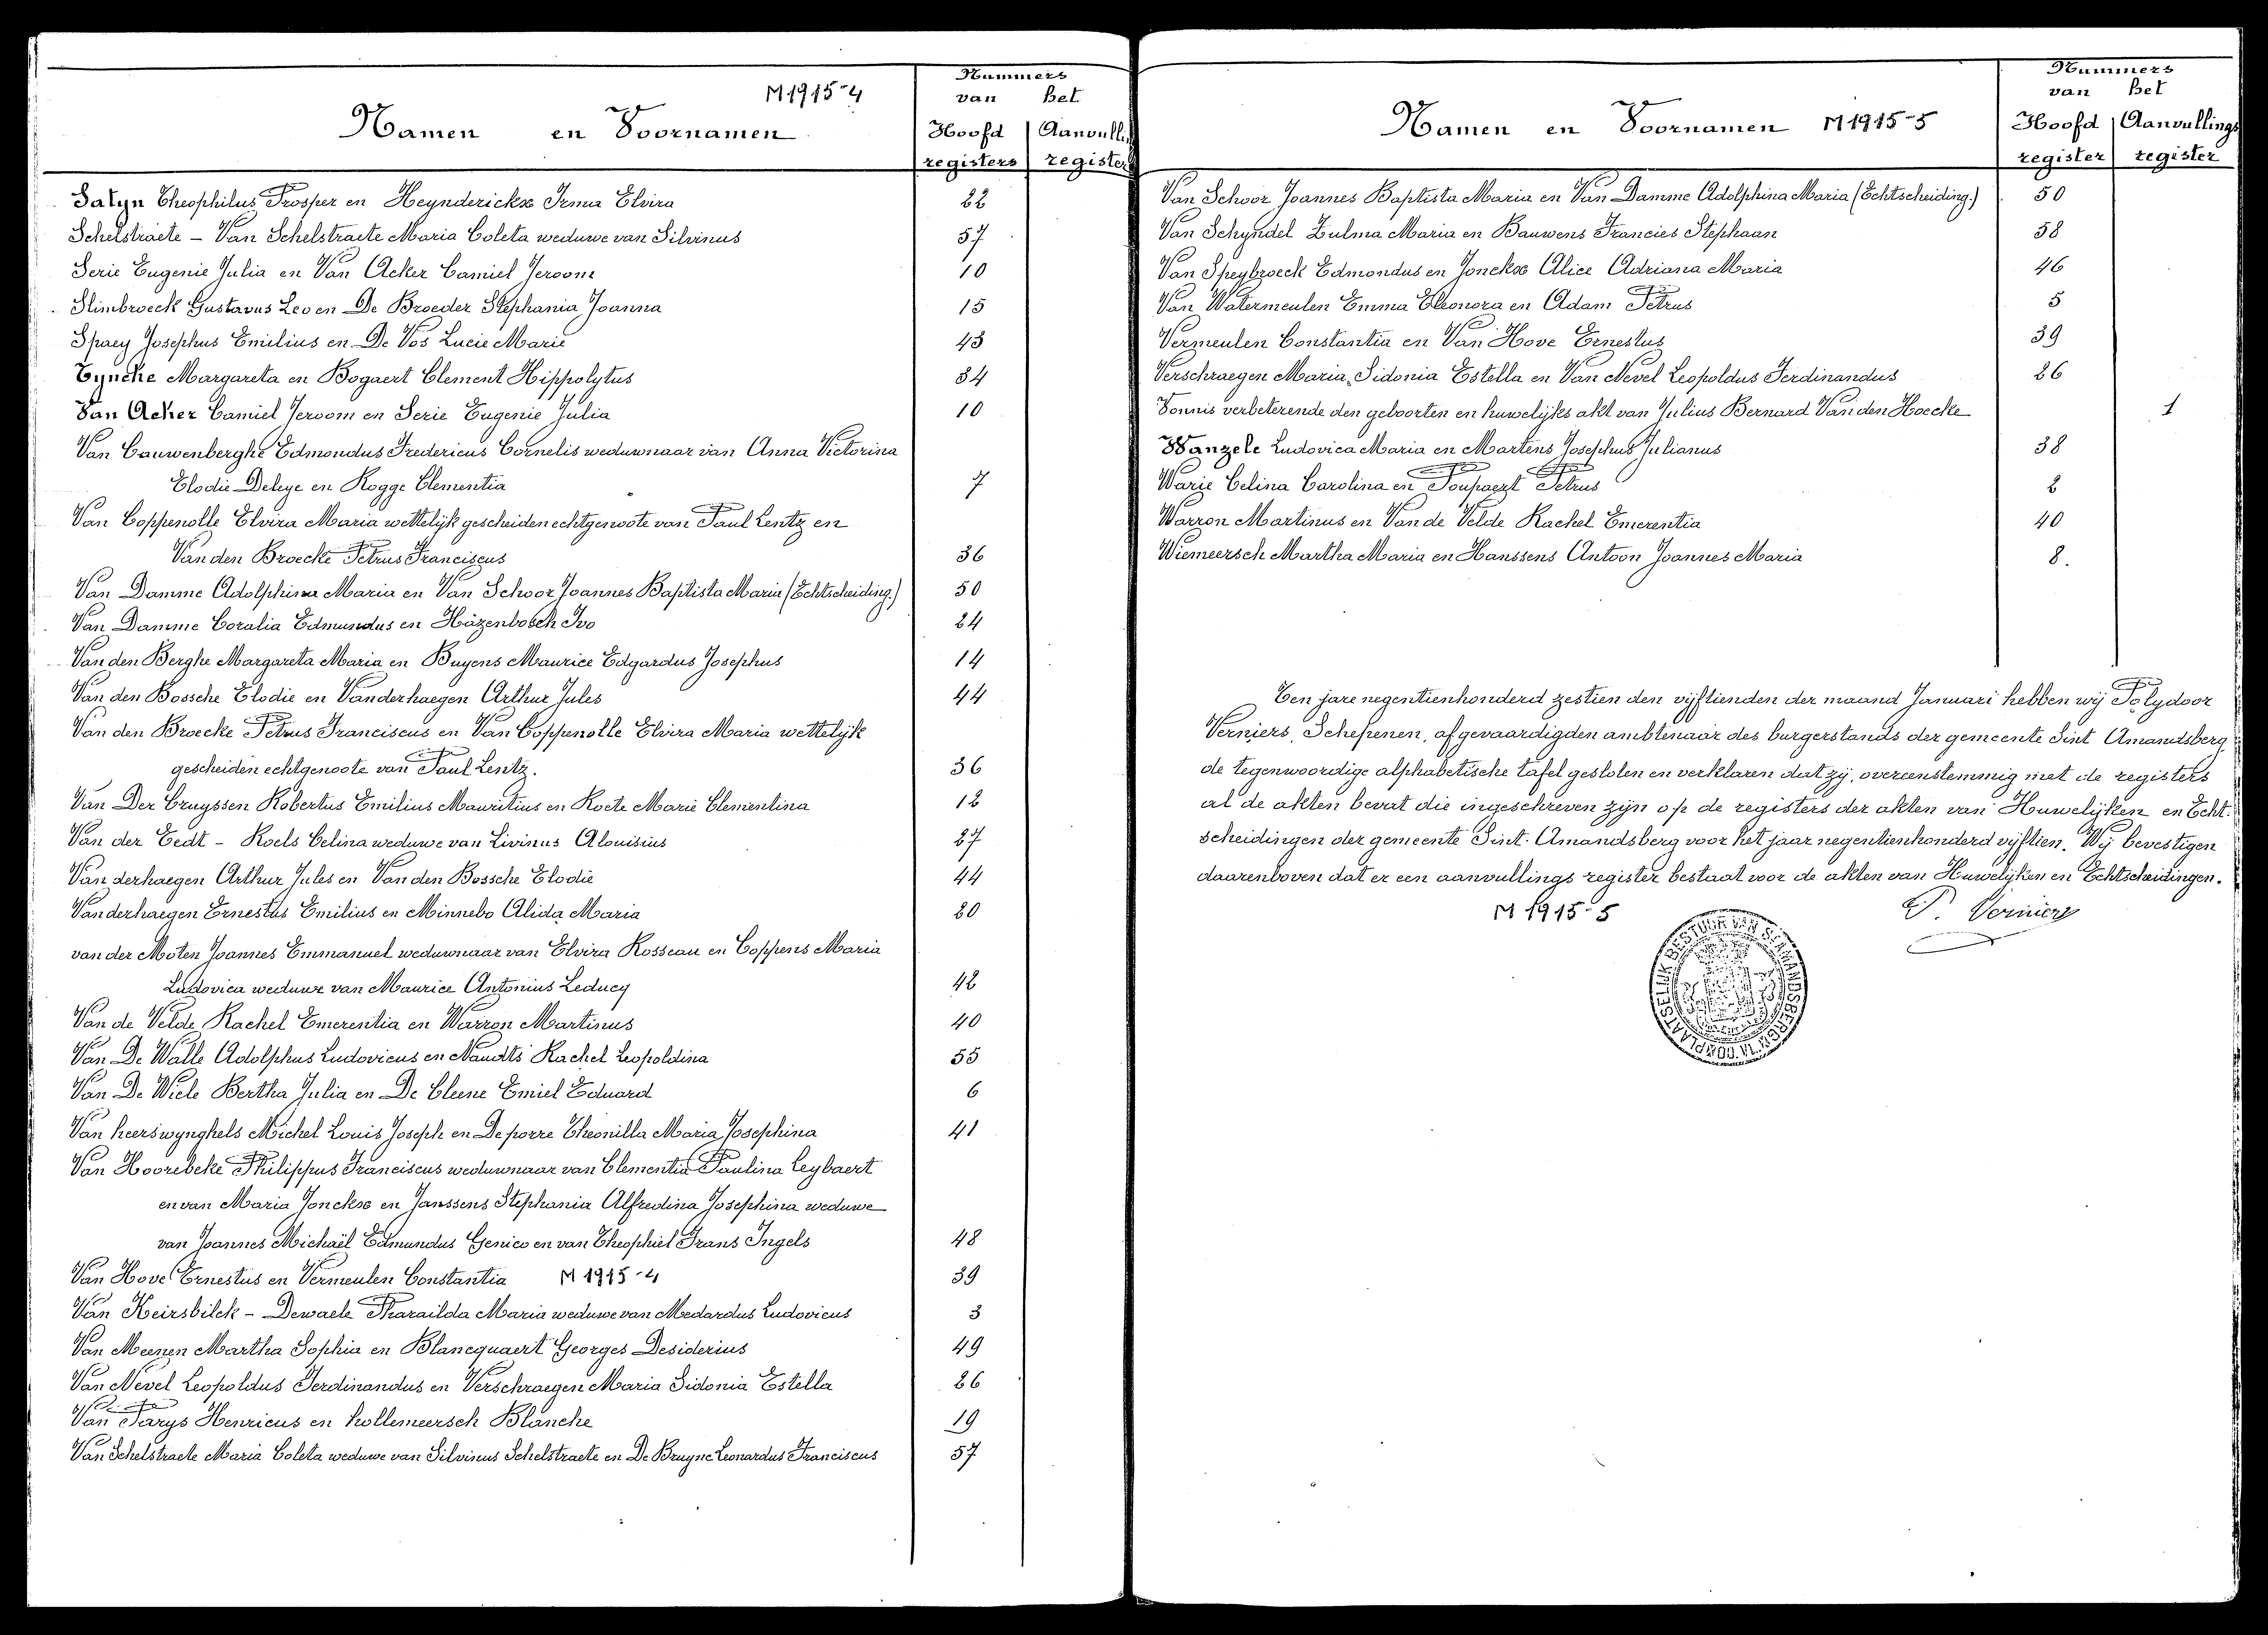 M 1915-4
Namen en Voornamen
Nummers
van het
Hoofd Aanvulli
registers register
Salyn Theophilus Prosper en Heynderickx Irma Elvira 22
Schelstraete - Van Schelstraete Maria Coleta weduwe van Silvinus 57
Serie Eugenie Julia en Van Acker Camiel Jeroom 10
Slimbroeck Gustavus Leo en De Broeder Stephania Joanna 15
Spaey Josephus Emilius en De Vos Lucie Marie 43
Tyncke Margareta en Bogaert Clement Hippolytus 34
Van Acker Camiel Jeroom en Serie Eugenie Julia 10
Van Cauwenberghe Edmondus Fredericus Cornelis weduwnaar van Anna Victorina
Elodie Deleye en Rogge Clementia 7
Van Coppenolle Elvira Maria wettelijk gescheiden echtgenoote van Paul Lentz en
Van den Broecke Petrus Franciscus 36
Van Damme Adolphina Maria en Van Schoor Joannes Baptista Maria (Echtscheiding.) 50
Van Damme Coralia Edmundus en Häzenbosch Ivo 24
Van den Berghe Margareta Maria en Buyens Maurice Edgardus Josephus 14
Van den Bossche Elodie en Vanderhaegen Arthur Jules 44
Van den Broecke Petrus Franciscus en Van Coppenolle Elvira Maria wettelijk
gescheiden echtgenoote van Paul Lentz. 36
Van Der Cruyssen Robertus Emilius Mauritius en Roete Marie Clementina 12
Van der Eedt - Roels Celina weduwe van Livinus Alouisius 27
Van derhaegen Arthur Jules en Van den Bossche Elodie 44
Vanderhaegen Ernestus Emilius en Minnebo Alida Maria 20
van der Moten Joannes Emmanuel weduwnaar van Elvira Rosseau en Coppens Maria
Ludovica weduwe van Maurice Antonius Leducq 42
Van de Velde Rachel Emerentia en Warron Martinus 40
Van De Walle Adolphus Ludovicus en Naudts Rachel Leopoldina 55
Van De Wiele Bertha Julia en De Cleene Emiel Eduard 6
Van heerswynghels Michel Louis Joseph en De porre Theonilla Maria Josephina 41
Van Hoorebeke Philippus Franciscus weduwnaar van Clementia Paulina Leybaert
en van Maria Jonckx en Janssens Stephania Alfredina Josephina weduwe
van Joannes Michaël Edmundus Genico en van Theophiel Frans Ingels 48
Van Hove Ernestus en Vermeulen Constantia M 1915-4 39
Van Keirsbilck - Dewaele Pharailda Maria weduwe van Medardus Ludovicus 3
Van Meenen Martha Sophia en Blancquaert Georges Desiderius 49
Van Nevel Leopoldus Ferdinandus en Verschraegen Maria Sidonia Estella 26
Van Parys Henricus en hollemeersch Blanche 19
Van Schelstraete Maria Coleta weduwe van Silvinus Schelstraete en De Bruyne Leonardus Franciscus 57
Namen en Voornamen M 1915-5
Nummers
van het
Hoofd Aanvullings
register register
Van Schoor Joannes Baptista Maria en Van Damme Adolphina Maria (Echtscheiding.) 50
Van Schyndel Zulma Maria en Bauwens Francies Stephaan 58
Van Speybroeck Edmondus en Jonckx Alice Adriana Maria 46
Van Watermeulen Emma Eleonora en Adam Petrus 5
Vermeulen Constantia en Van Hove Ernestus 39
Verschraegen Maria, Sidonia Estella en Van Nevel Leopoldus Ferdinandus 26
Vonnis verbeterende den geboorten en huwelijks akt van Julius Bernard Van den Hoecke 1
Wanzele Ludovica Maria en Martens Josephus Julianus 38
Warie Celina Carolina en Poupaert Petrus 2
Warron Martinus en Van de Velde Rachel Emerentia 40
Wiemeersch Martha Maria en Hanssens Antoon Joannes Maria 8.
Ten jare negentienhonderd zestien den vijftienden der maand Januari hebben wij Polydoor
Verniers, Schepenen, afgevaardigden ambtenaar des burgerstands der gemeente Sint Amandsberg
de tegenwoordige alphabetische tafel gesloten en verklaren dat zij, overeenstemmig met de registers
al de akten bevat die ingeschreven zijn op de registers der akten van Huwelijken en Echt-
scheidingen der gemeente Sint-Amandsberg voor het jaar negentienhonderd vijftien. Wij bevestigen
daarenboven dat er een aanvullings register bestaat voor de akten van Huwelijken en Echtscheidingen.
M 1915-5
P. Verniers
PLAATSELIJK BESTUUR VAN ST AMANDSBERG